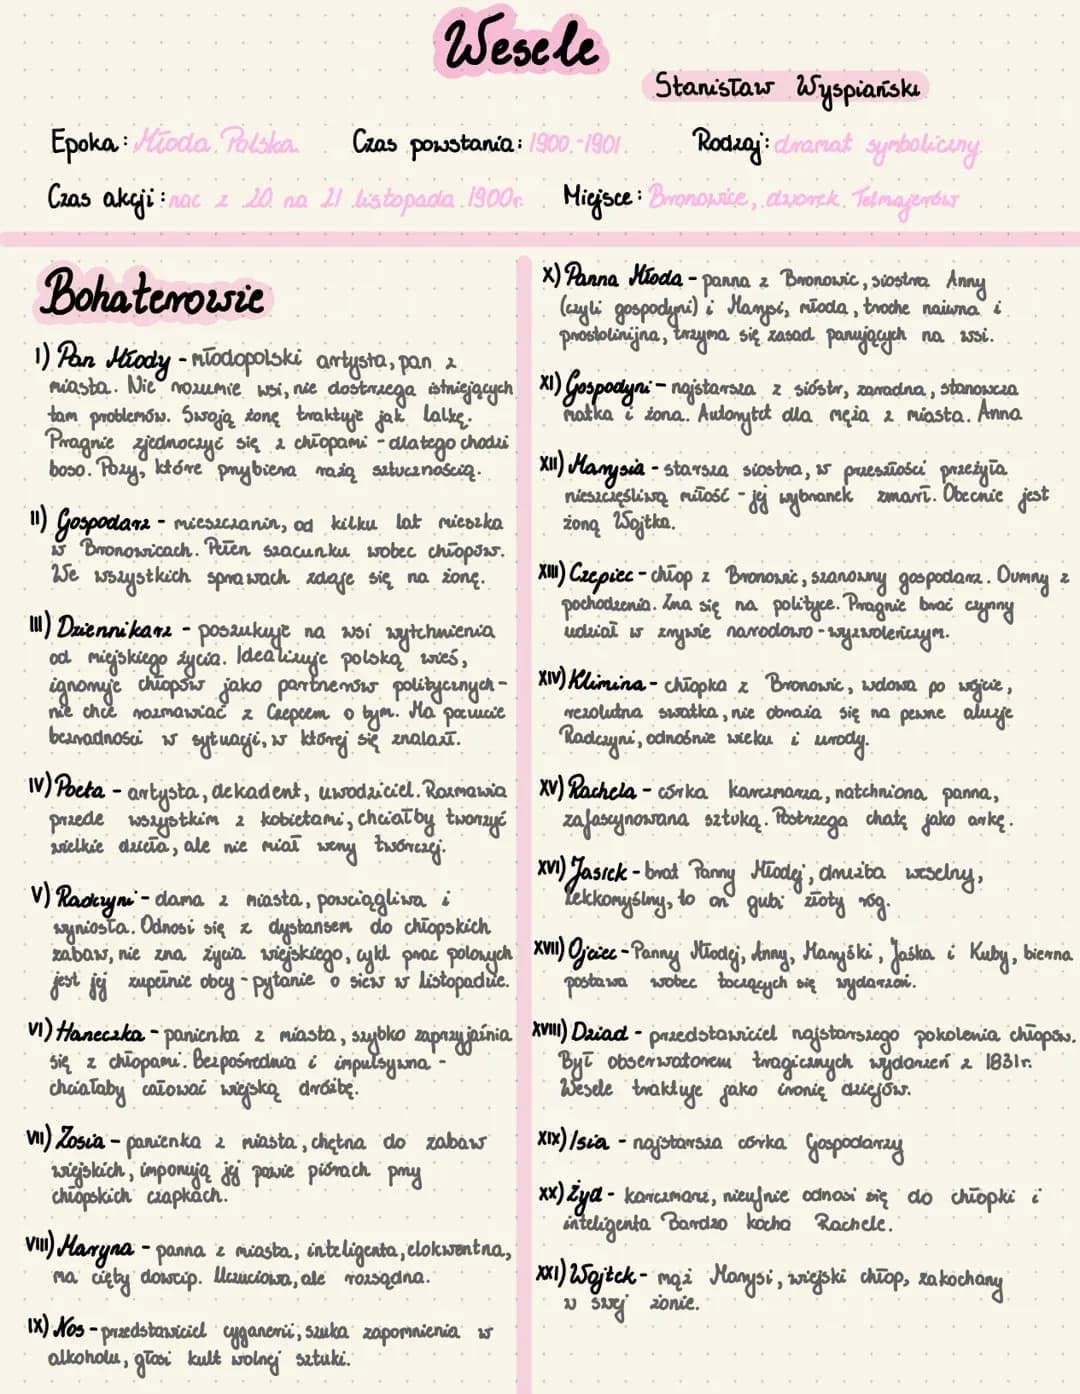 Wesele
Stanisław Wyspiański
Epoka: Młoda Polska. Czas powstania: 1900.-1901. Rodzaj: dramat symboliczny
Czas akcji: noc z 20 na 21 listopada 1900r. Miejsce: Bronowice, dworek Tetmajerów
Bohaterowie
I) Pan Młody - młodopolski artysta, pan z
miasta. Nie rozumie wsi, nie dostrzega istniejących
tam problemów. Swoją żonę traktuje jak lalkę.
Pragnie zjednoczyć się z chłopami - dlatego chodzi
boso. Pozy, które przybiera rażą sztucznością.
II) Gospodarz - mieszczanin, od kilku lat mieszka
w Bronowicach. Pełen szacunku wobec chłopów.
We wszystkich sprawach zdaje się na żonę.
III) Dziennikarz - poszukuje na wsi wytchnienia
od miejskiego życia. Idealizuje polską wieś,
ignoruje chłopów jako partnerów politycznych -
nie chce rozmawiać z Czepcem o tym. Ma poczucie
bezradności w sytuacji, w której się znalazł.
IV) Poeta - artysta, dekadent, uwodziciel. Rozmawia
przede wszystkim z kobietami, chciałby tworzyć
wielkie dzieła, ale nie miał weny twórczej.
V) Radczyni - dama z miasta, powciągliwa i
wyniosła. Odnosi się z dystansem do chłopskich
zabaw, nie zna życia wiejskiego, cykl prac polowych
jest jej zupełnie obcy - pytanie o siew w listopadzie.
VI) Haneczka - panienka z miasta, szybko zaprzyjaźnia
się z chłopami. Bezpośrednia i impulsywna -
chciałaby całować wiejską dróżbę.
VII) Zosia - panienka z miasta, chętna do zabaw
wiejskich, imponują jej pawie piórach przy
chłopskich czapkach.
VIII) Maryna - panna z miasta, inteligenta, elokwentna,
ma cięty dowcip. Uczuciowa, ale rozsądna.
IX) Nos - przedstawiciel cyganerii, szuka zapomnienia w
alkoholu, głosi kult wolnej sztuki.
X) Panna Młoda - panna z Bronowic, siostra Anny
(czyli gospodyni) i Marysi, młoda, troche naiwna i
prostolinijna, trzyma się zasad panujących na wsi.
XI) Gospodyni - najstarsza z sióstr, zaradna, stanowcza
matka i żona. Autorytet dla męża z miasta. Anna
XII) Marysia - starsza siostra, w przeszłości przeżyła
nieszczęśliwą miłość - jej wybranek zmarł. Obecnie jest
żoną Wojtka.
XIII) Czepiec - chłop z Bronowic, szanowny gospodarz. Dumny z
pochodzenia. Zna się na polityce. Pragnie brać czynny
udział w zrywie narodowo-wyzwoleńczym.
XIV) Klimina - chłopka z Bronowic, wdowa po wójcie,
rezolutna swatka, nie obraża się na pewne aluzje
Radczyni, odnośnie wieku i urody.
XV) Rachela - córka karczmarza, natchniona panna,
zafascynowana sztuką. Postrzega chatę jako arkę.
XVI) Jasiek - brat Panny Młodej, drużba weselny,
lekkomyślny, to on gubi złoty róg.
XVII) Ojciec - Panny Młodej, Anny, Maryśki, Jaśka i Kuby, bierna
postawa wobec toczących się wydarzeń.
XVIII) Dziad - przedstawiciel najstarszego pokolenia chłopów.
Był obserwatorem tragicznych wydarzeń z 1831r.
Wesele traktuje jako ironię dziejów.
XIX) Isia - najstarsza córka Gospodarzy
XX) Żyd - karczmarz, nieufnie odnosi się do chłopki i
inteligenta Bardzo kocha Rachele.
XXI) Wojtek - mąż Marysi, wiejski chłop, zakochany
w swej żonie.